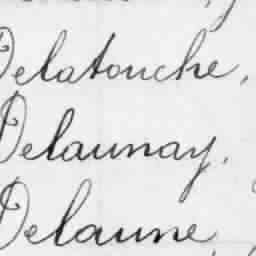 Delatouche,
Delaunay,
Delaune,